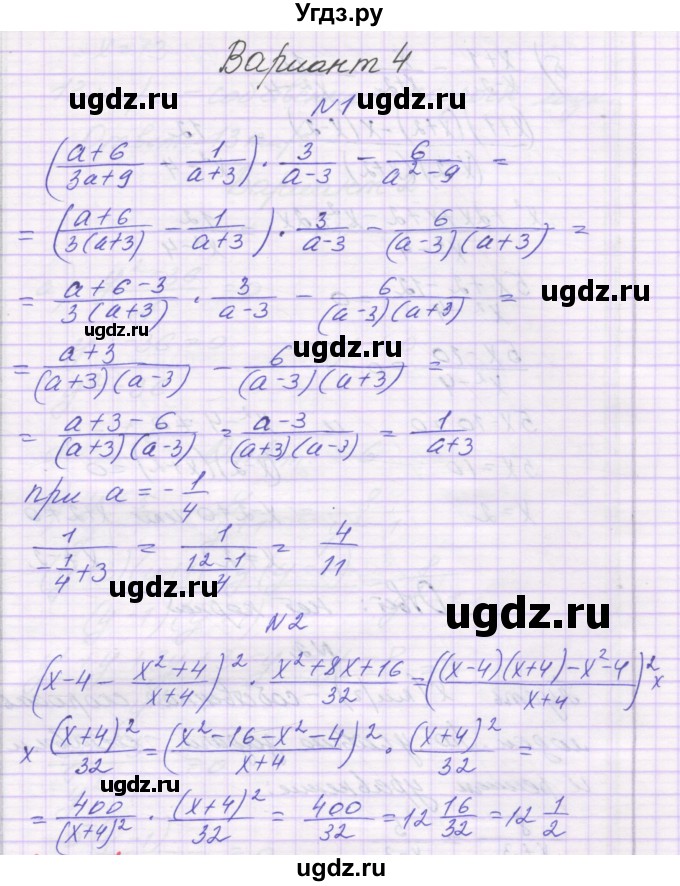 Угдз.ру
Вариант 4
ugdz.ru ugdz.ru
N1
((a+6)/(3a+9) - 1/(a+3)) · 3/(a-3) - 6/(a²-9) =
= ((a+6)/(3(a+3)) - 1/(a+3)) · 3/(a-3) - 6/((a-3)(a+3)) =
ugdz.ru
= (a+6-3)/(3(a+3)) · 3/(a-3) - 6/((a-3)(a+3)) =
ugdz.ru
ugdz.ru
= (a+3)/((a+3)(a-3)) - 6/((a-3)(a+3)) =
= (a+3-6)/((a+3)(a-3)) = (a-3)/((a+3)(a-3)) = 1/(a+3)
при a = -1/4
1/(-1/4+3) = 1/((12-1)/4) = 4/11
ugdz.ru
ugdz.ru
N2
(x-4 - (x²+4)/(x+4))² · (x²+8x+16)/32 = (((x-4)(x+4)-x²-4)/(x+4))² x
ugdz.ru
x (x+4)²/32 = ((x²-16-x²-4)/(x+4))² · (x+4)²/32 =
ugdz.ru
= 400/(x+4)² · (x+4)²/32 = 400/32 = 12 16/32 = 12 1/2
ugdz.ru ugdz.ru